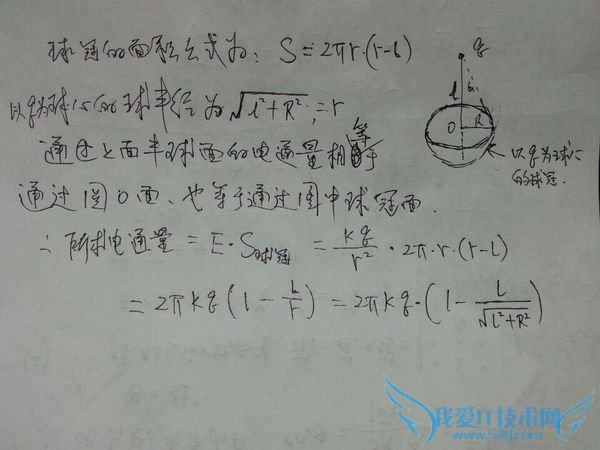 球冠的面积公式为: S = 2πr·(r-l)
以q为球心的球半径为 √(l²+R²) = r
通过上面半球面的电通量相等于
通过圆O面、也等于通过图中球冠面.
∴ 所求电通量 = E·S球冠 = kq/r² · 2π·r·(r-l)
= 2πkq(1 - l/r) = 2πkq·(1 - l/√(l²+R²))
q
l
r
O R
以q为球心
的球冠.
我爱IT技术网